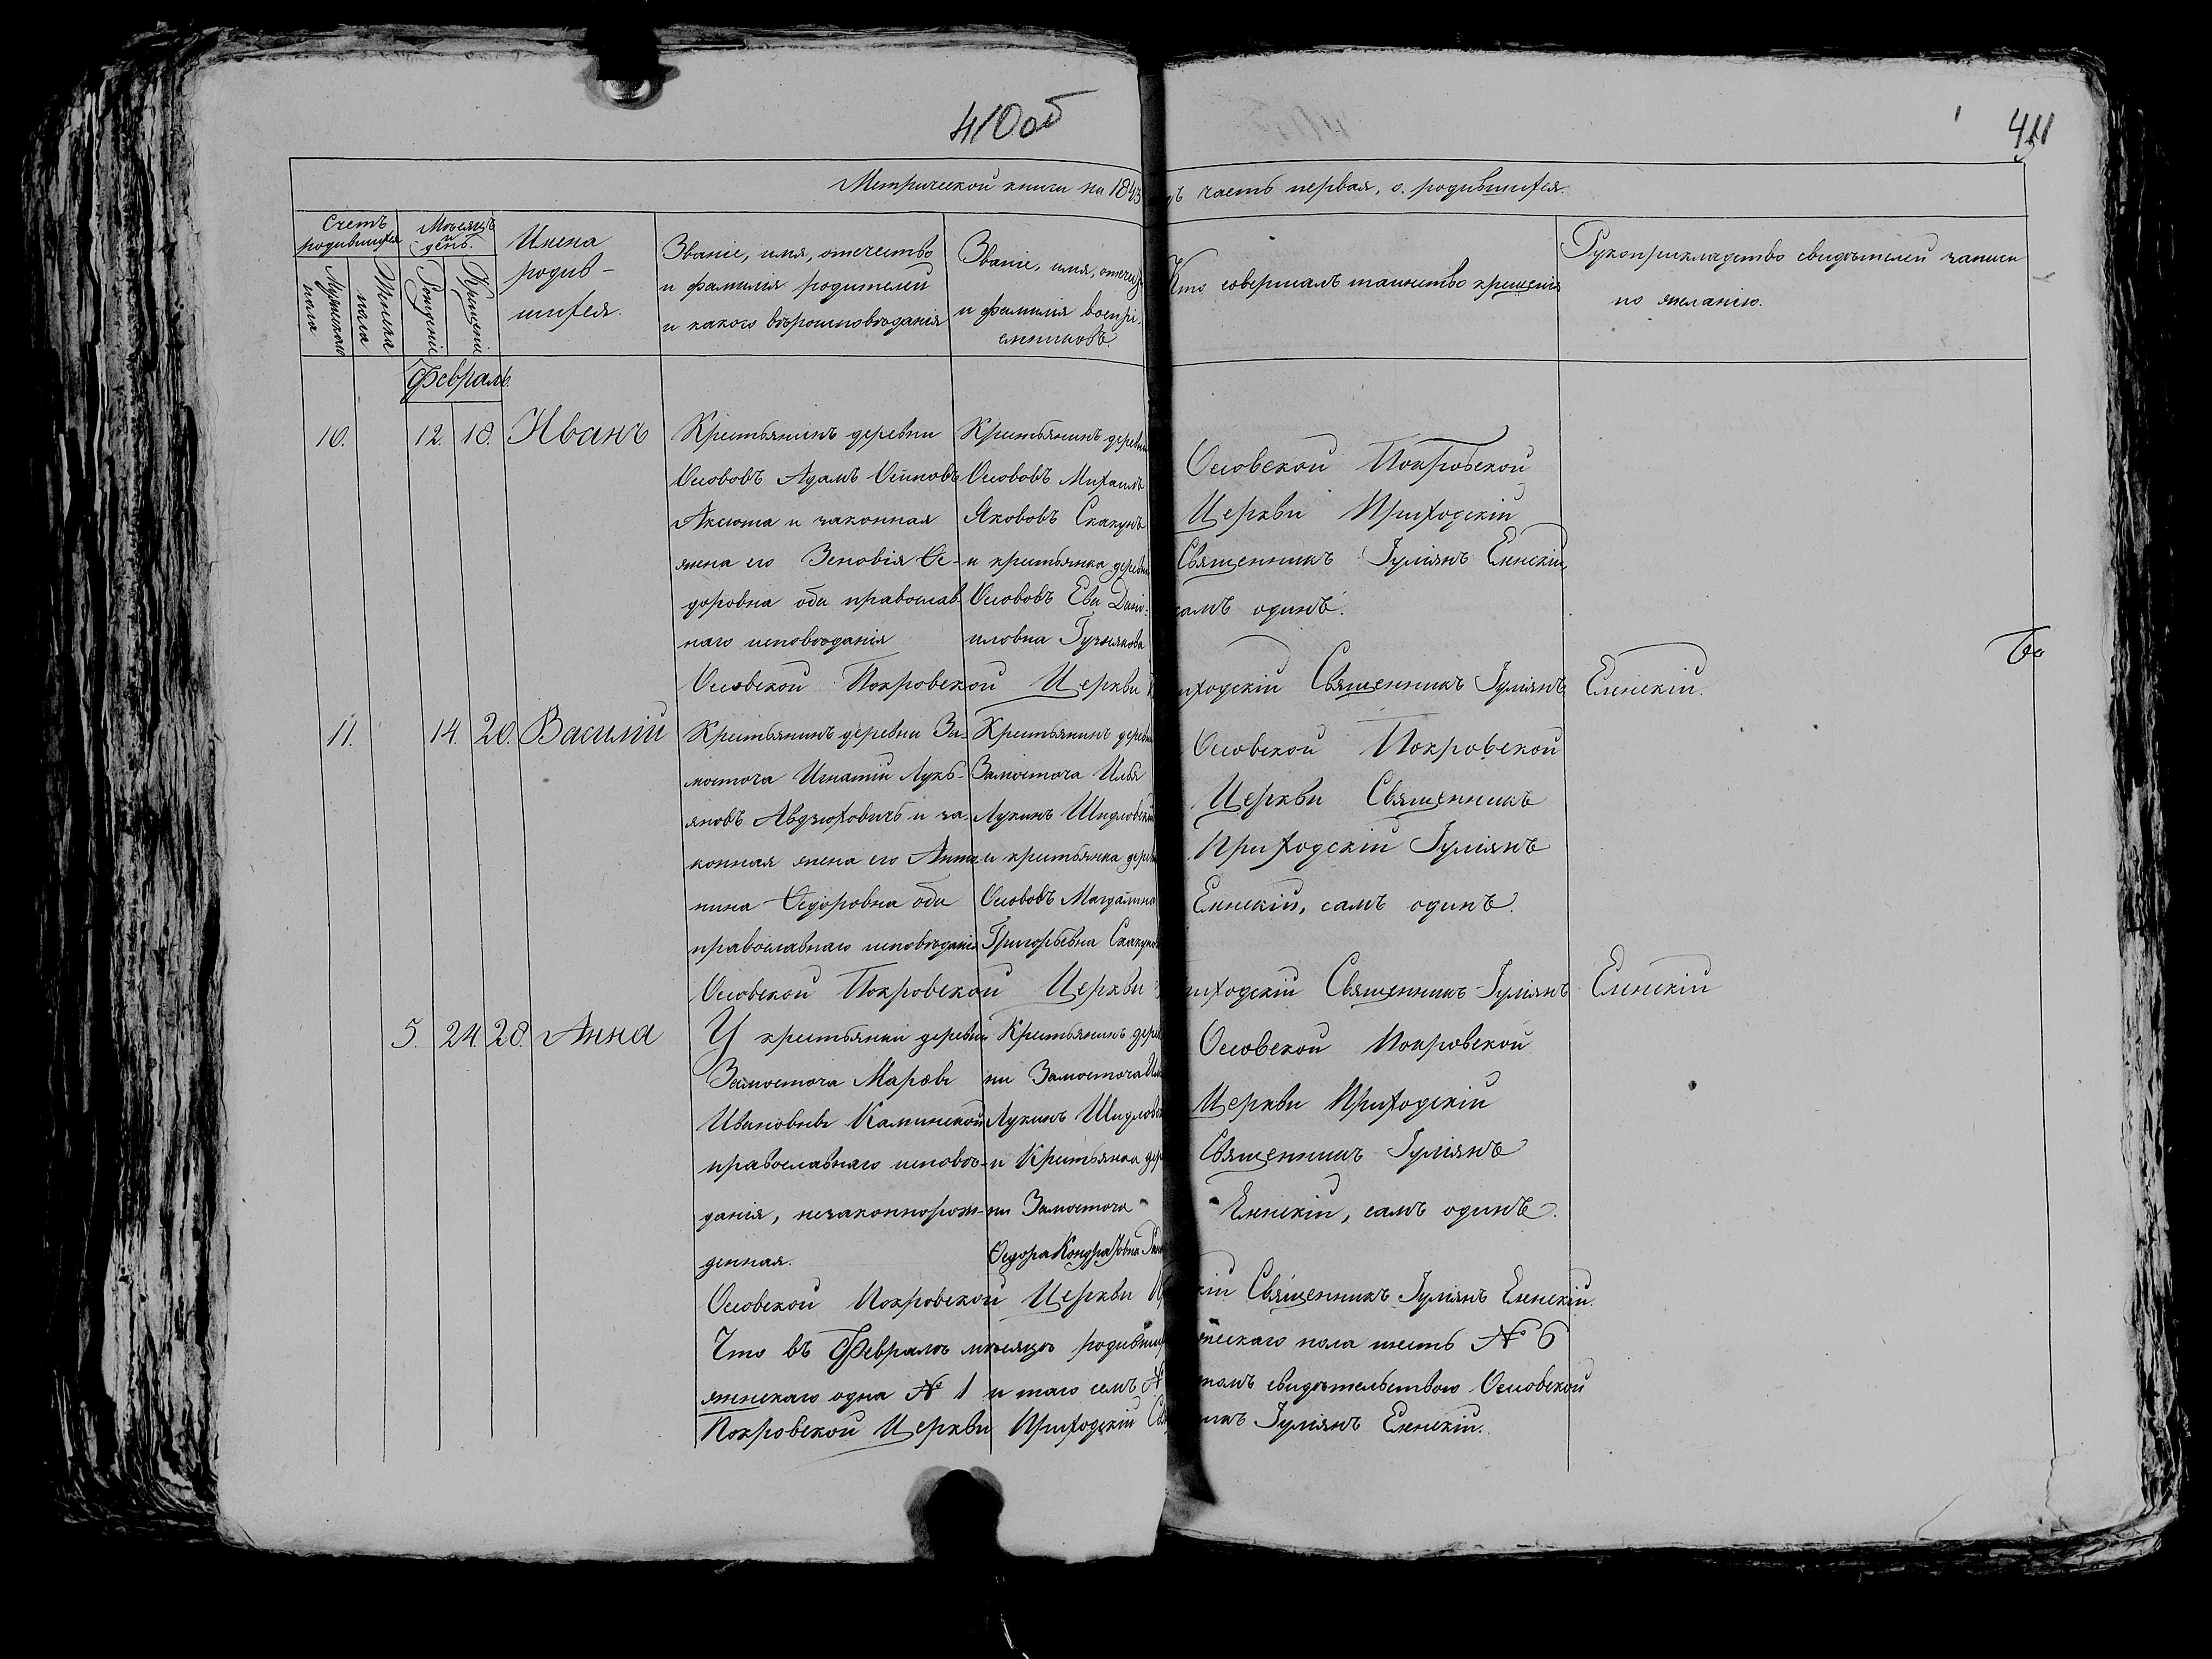 410 об
411
Метрической книги на 1843 дъ часть первая, о родившихся.
Счетъ родившихся
Мѣсяцъ и день.
Имена родив-
шихся.
Званіе, имя, отечество
и фамилія родителей
и какого вѣроисповѣданія
Званіе, имя, отечес
и фамилія воспрі-
емниковъ.
Кто совершалъ таинство крещенія
Рукоприкладство свидѣтелей записи
по желанію.
Мужескаго пола
Женска пола
Рожденіе
Крещеніе
Февраль.
10. 12. 18. Иванъ
Крестьянинъ деревни
Осововъ Адамъ Осиповъ
Аксюта и законная
жена его Зеновія Ѳе-
доровна оба православ-
наго исповѣданія
Крестьянинъ деревни
Осововъ Михаилъ
Яковovъ Скакунъ
и крестьянка деревни
Осововъ Ева Дани-
иловна
Осовской Покровской
Церкви Приходскій
Священникъ Іуліянъ Еленскій,
самъ одинъ.
Осовской Покровской Церкви П
иходскій Священникъ Іуліянъ Еленскій.
11. 14. 20. Василій
Крестьянинъ деревни За-
мосточа Игнатій Лукь-
яновъ Авдзюховичъ и за-
конная жена его Анто-
нина Ѳедоровна оба
православнаго исповѣданія
Крестьянинъ деревни
Замосточа Илья
Лукинъ Шидловскій
и крестьянка дерев
Осововъ Магдалина
Григорьевна Скакунова
Осовской Покровской
Церкви Священникъ
Приходскій Іуліянъ
Еленскій, самъ одинъ.
Осовской Покровской Церкви
иходскій Священникъ Іуліянъ Еленскій
5. 24. 28. Анна
У крестьянки деревни
Замосточа Маріи
Ивановны Каминской
православнаго исповѣ-
данія, незаконнорож-
денная.
Крестьянинъ дерев
ни Замосточа Илья
Лукинъ Шидловс
и Крестьянка дер
ни Замосточа
Ѳедора Кондратовна
Осовской Покровской
Церкви Приходскій
Священникъ Іуліянъ
Еленскій, самъ одинъ.
Осовской Покровской Церкви Пр
скій Священникъ Іуліянъ Еленскій.
Что въ Февралѣ мѣсяцѣ родивших
жескаго пола шесть № 6
женскаго одна № 1 и того семь №
томъ свидѣтельствою Осовской
Покровской Церкви Приходскій Свя
никъ Іуліянъ Еленскій.